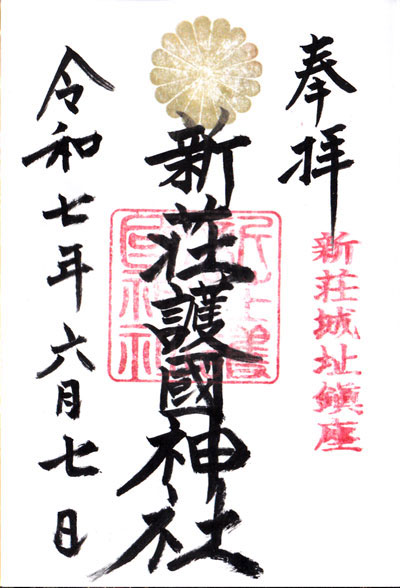 奉拝
新荘城址鎮座
新荘護國神社
令和七年六月七日